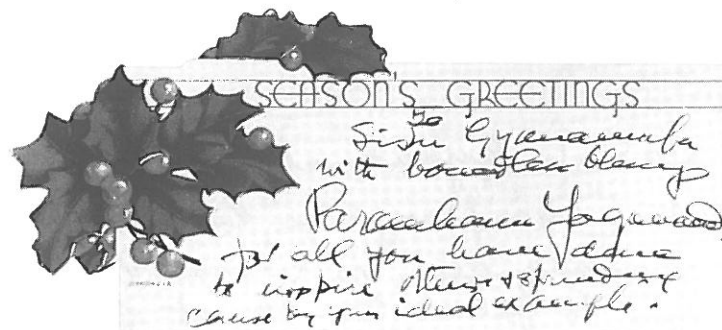 SEASON'S GREETINGS
To
Sister Gyanamata
with boundless blessings
Paramhansa Yogananda
for all you have done
to inspire others &
cause by your ideal example.